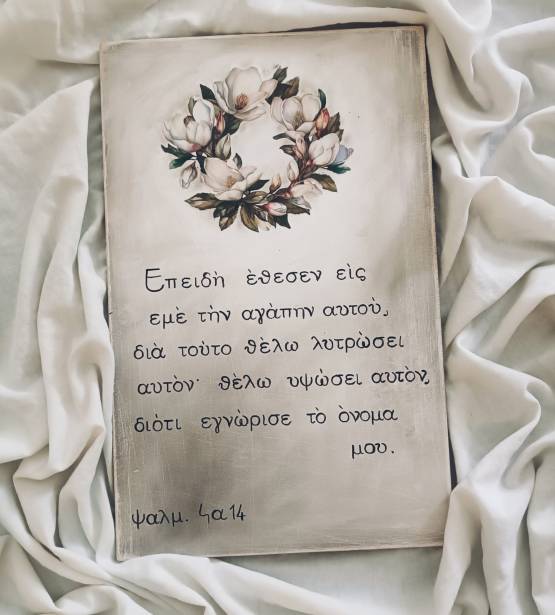 Επειδὴ ὲθεσεν εὶς
εμὲ τὴν αγὰπην αυτοὺ,
διὰ τοὺτο θὲλω λυτρὼσει
αυτὸν· θὲλω υψὼσει αυτὸν,
διὸτι εγνὼρισε τὸ ὸνομα
μου.
ψαλμ. ϟα 14